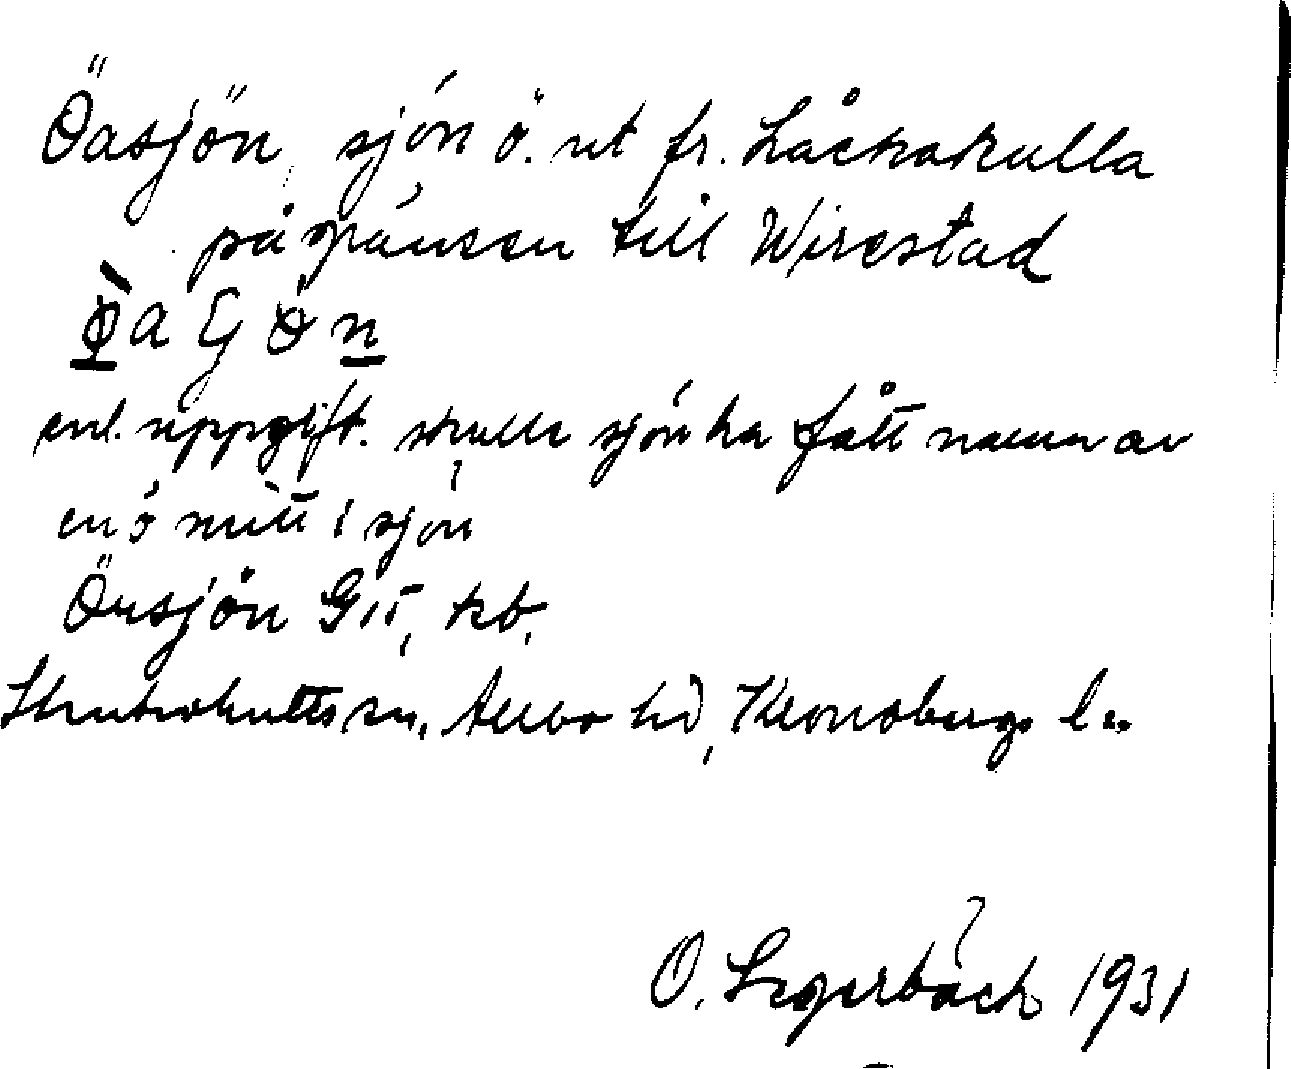 Öasjön, sjön ö. ut fr. Låckakulla
på gränsen till Wirestad
enl. uppgift. skulle sjön ha fått namn av
en ö mitt i sjön
Öusjön G15, kb.
sn, Allbo hd, Kronobergs län
O. Segerbäck 1931